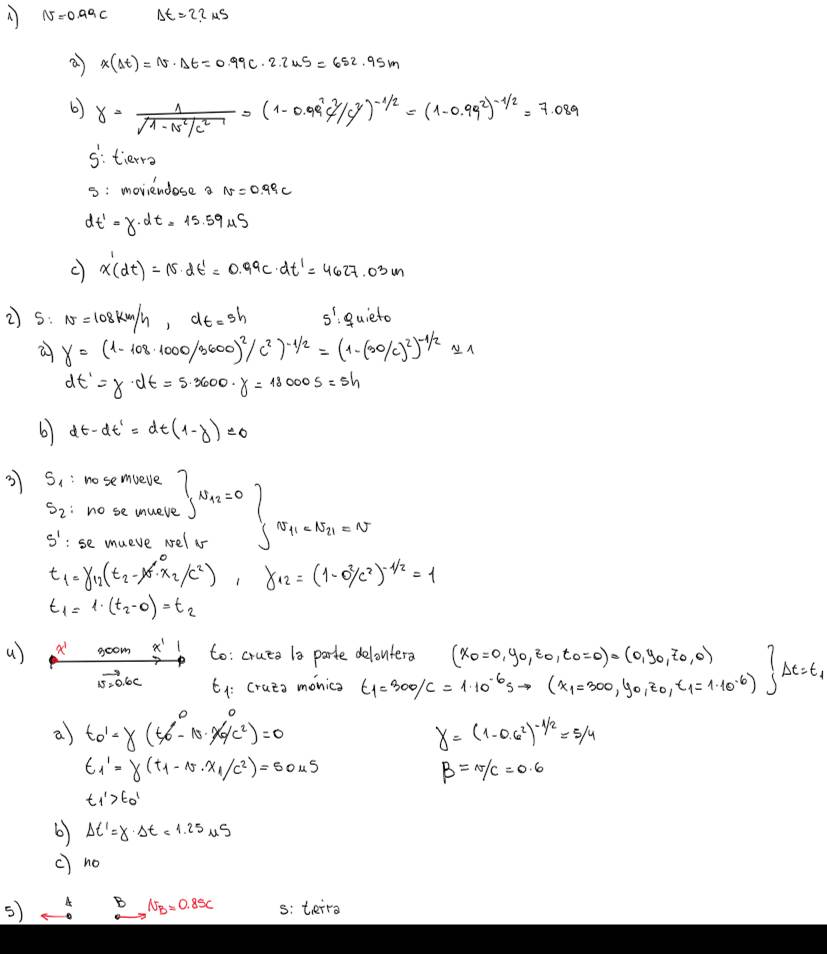 1) v=0.99c Δt=2.2 μs
a) x(Δt)=v·Δt=0.99c·2.2μs=652.95m
b) γ = 1/√(1-v²/c²) = (1-0.99²c²/c²)^(-1/2) = (1-0.99²)^(-1/2) = 7.089
S': tierra
S: moviéndose a v=0.99c
dt'=γ·dt=15.59μs
c) x'(dt)=v·dt'=0.99c·dt'=4627.03m
2) S: v=108km/h, dt=5h S': quieto
a) γ=(1-108·1000/3600)²/c²)^(-1/2)=(1-(30/c)²)^(-1/2)≃1
dt'=γ·dt=5·3600·γ=18000s=5h
b) dt-dt'=dt(1-γ)≃0
3) S₁: no se mueve
S₂: no se mueve } v₁₂=0
S': se mueve vel v } v₁₁=v₂₁=v
t₁=γ₁₂(t₂-v·x₂/c²) 0, γ₁₂=(1-0²/c²)^(-1/2)=1
t₁=1·(t₂-0)=t₂
4) x' 300m x' 1 t₀: cruza la parte delantera (x₀=0,y₀,z₀,t₀=0)=(0,y₀,z₀,0)
v=0.6c t₁: cruza mónica t₁=300/c=1·10⁻⁶s→ (x₁=300,y₀,z₀,t₁=1·10⁻⁶) } Δt=t₁
a) t₀'=γ(t₀ 0-v·x₀ 0/c²)=0 γ=(1-0.6²)^(-1/2)=5/4
t₁'=γ(t₁-v·x₁/c²)=50μs β=v/c=0.6
t₁'>t₀'
b) Δt'=γ·Δt=1.25μs
c) no
5) A B v_B=0.85c S: tierra